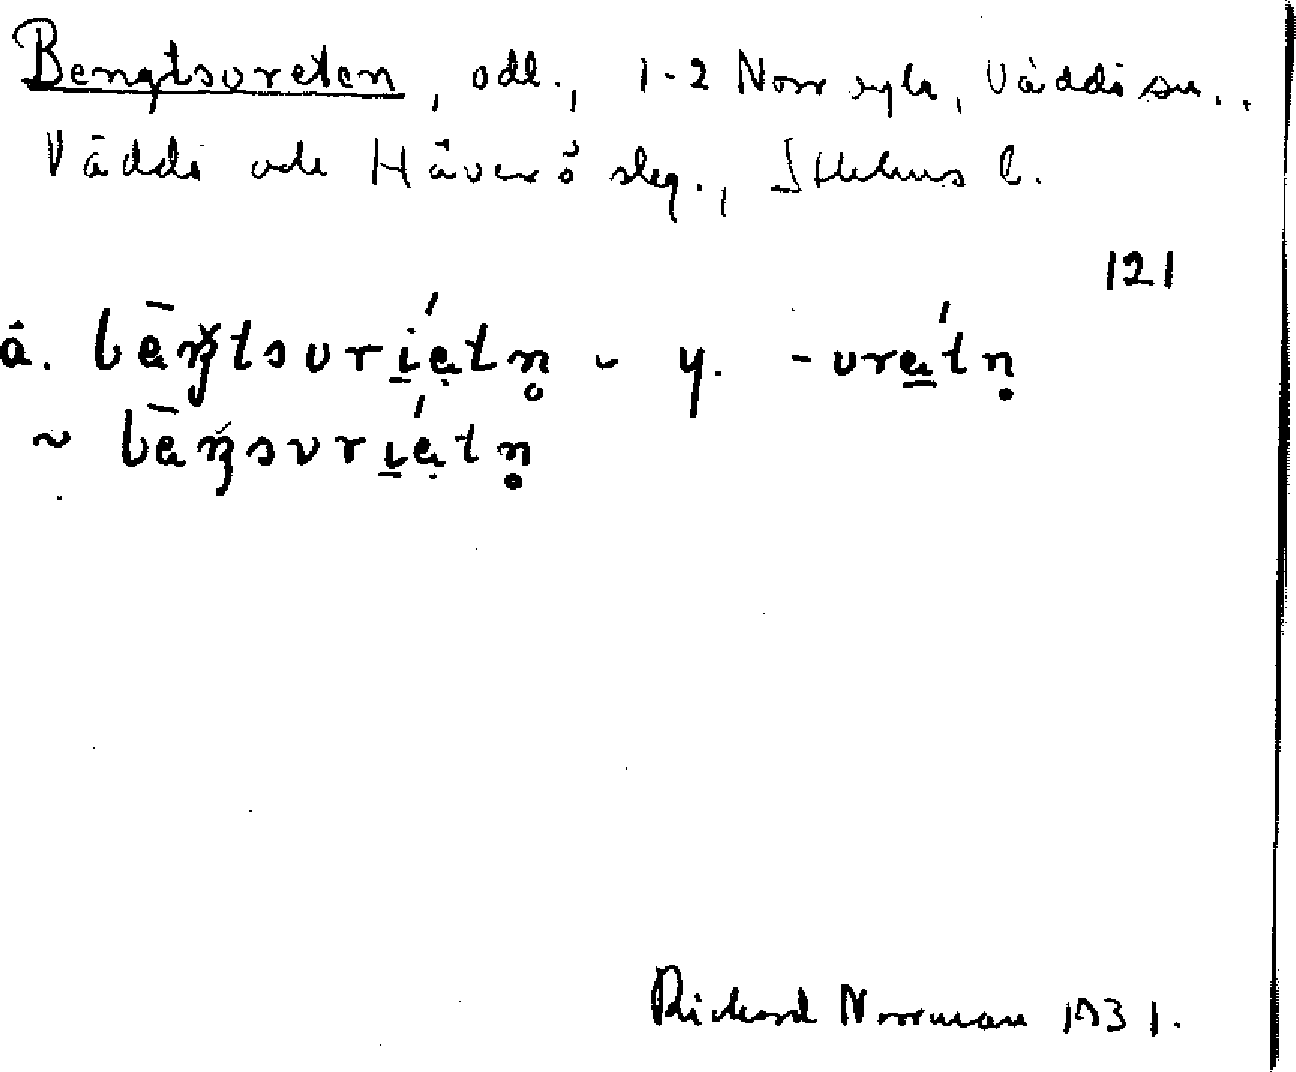 Bengtsvreten, odl., 1-2 Norrsyla, Väddö sn.,
Väddö och Häverö skg., Sthlms l.
121
ä. bēŋtsvriétn̥ - y. -vrétṇ
~ bēŋsvriétṇ
Richard Norrman 1931.